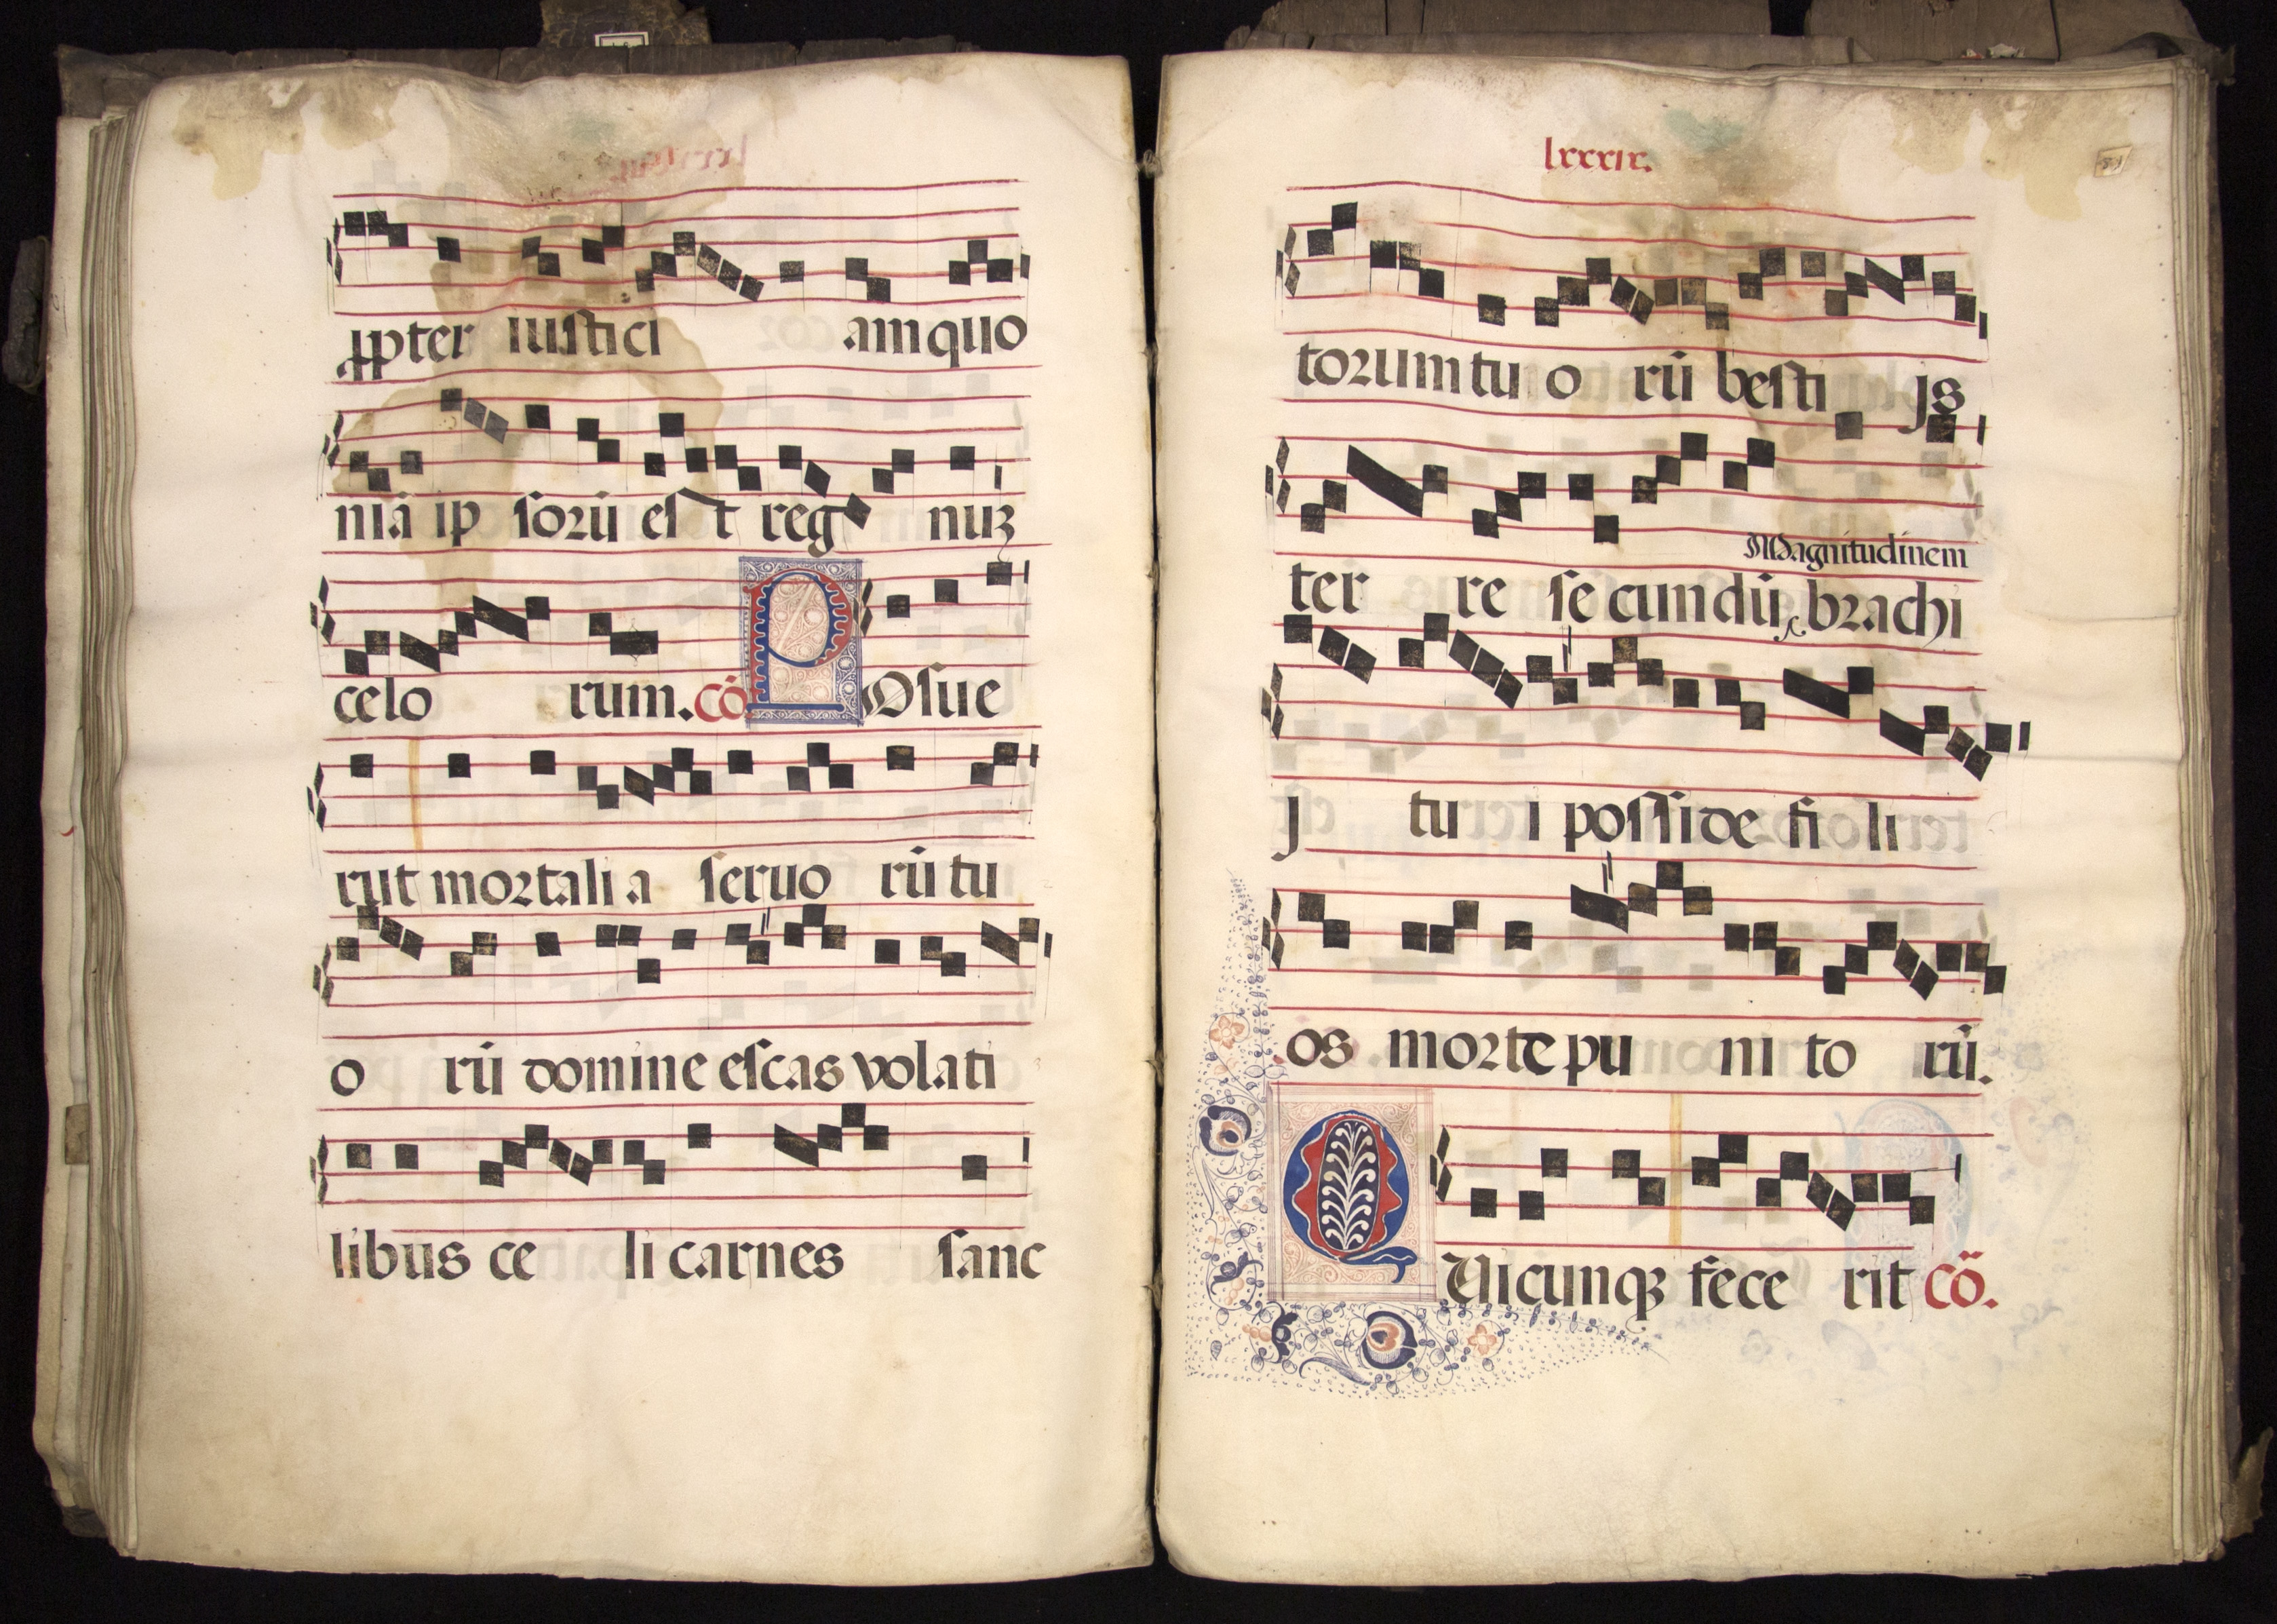 ꝓpter iustici amquo
niā ip sorū es t reg nuꝫ
celo rum. cō. Posue
rūt mortali a seruo rū tu
o rū domine escas volati
libus ce li carnes sanc
lxxxix.
torum tu o rū besti js
Magnitudinem
ter re se cundū brachi
j tu i posside fi li
os morte pu ni to rū.
Quicunqꝫ fece rit cō.